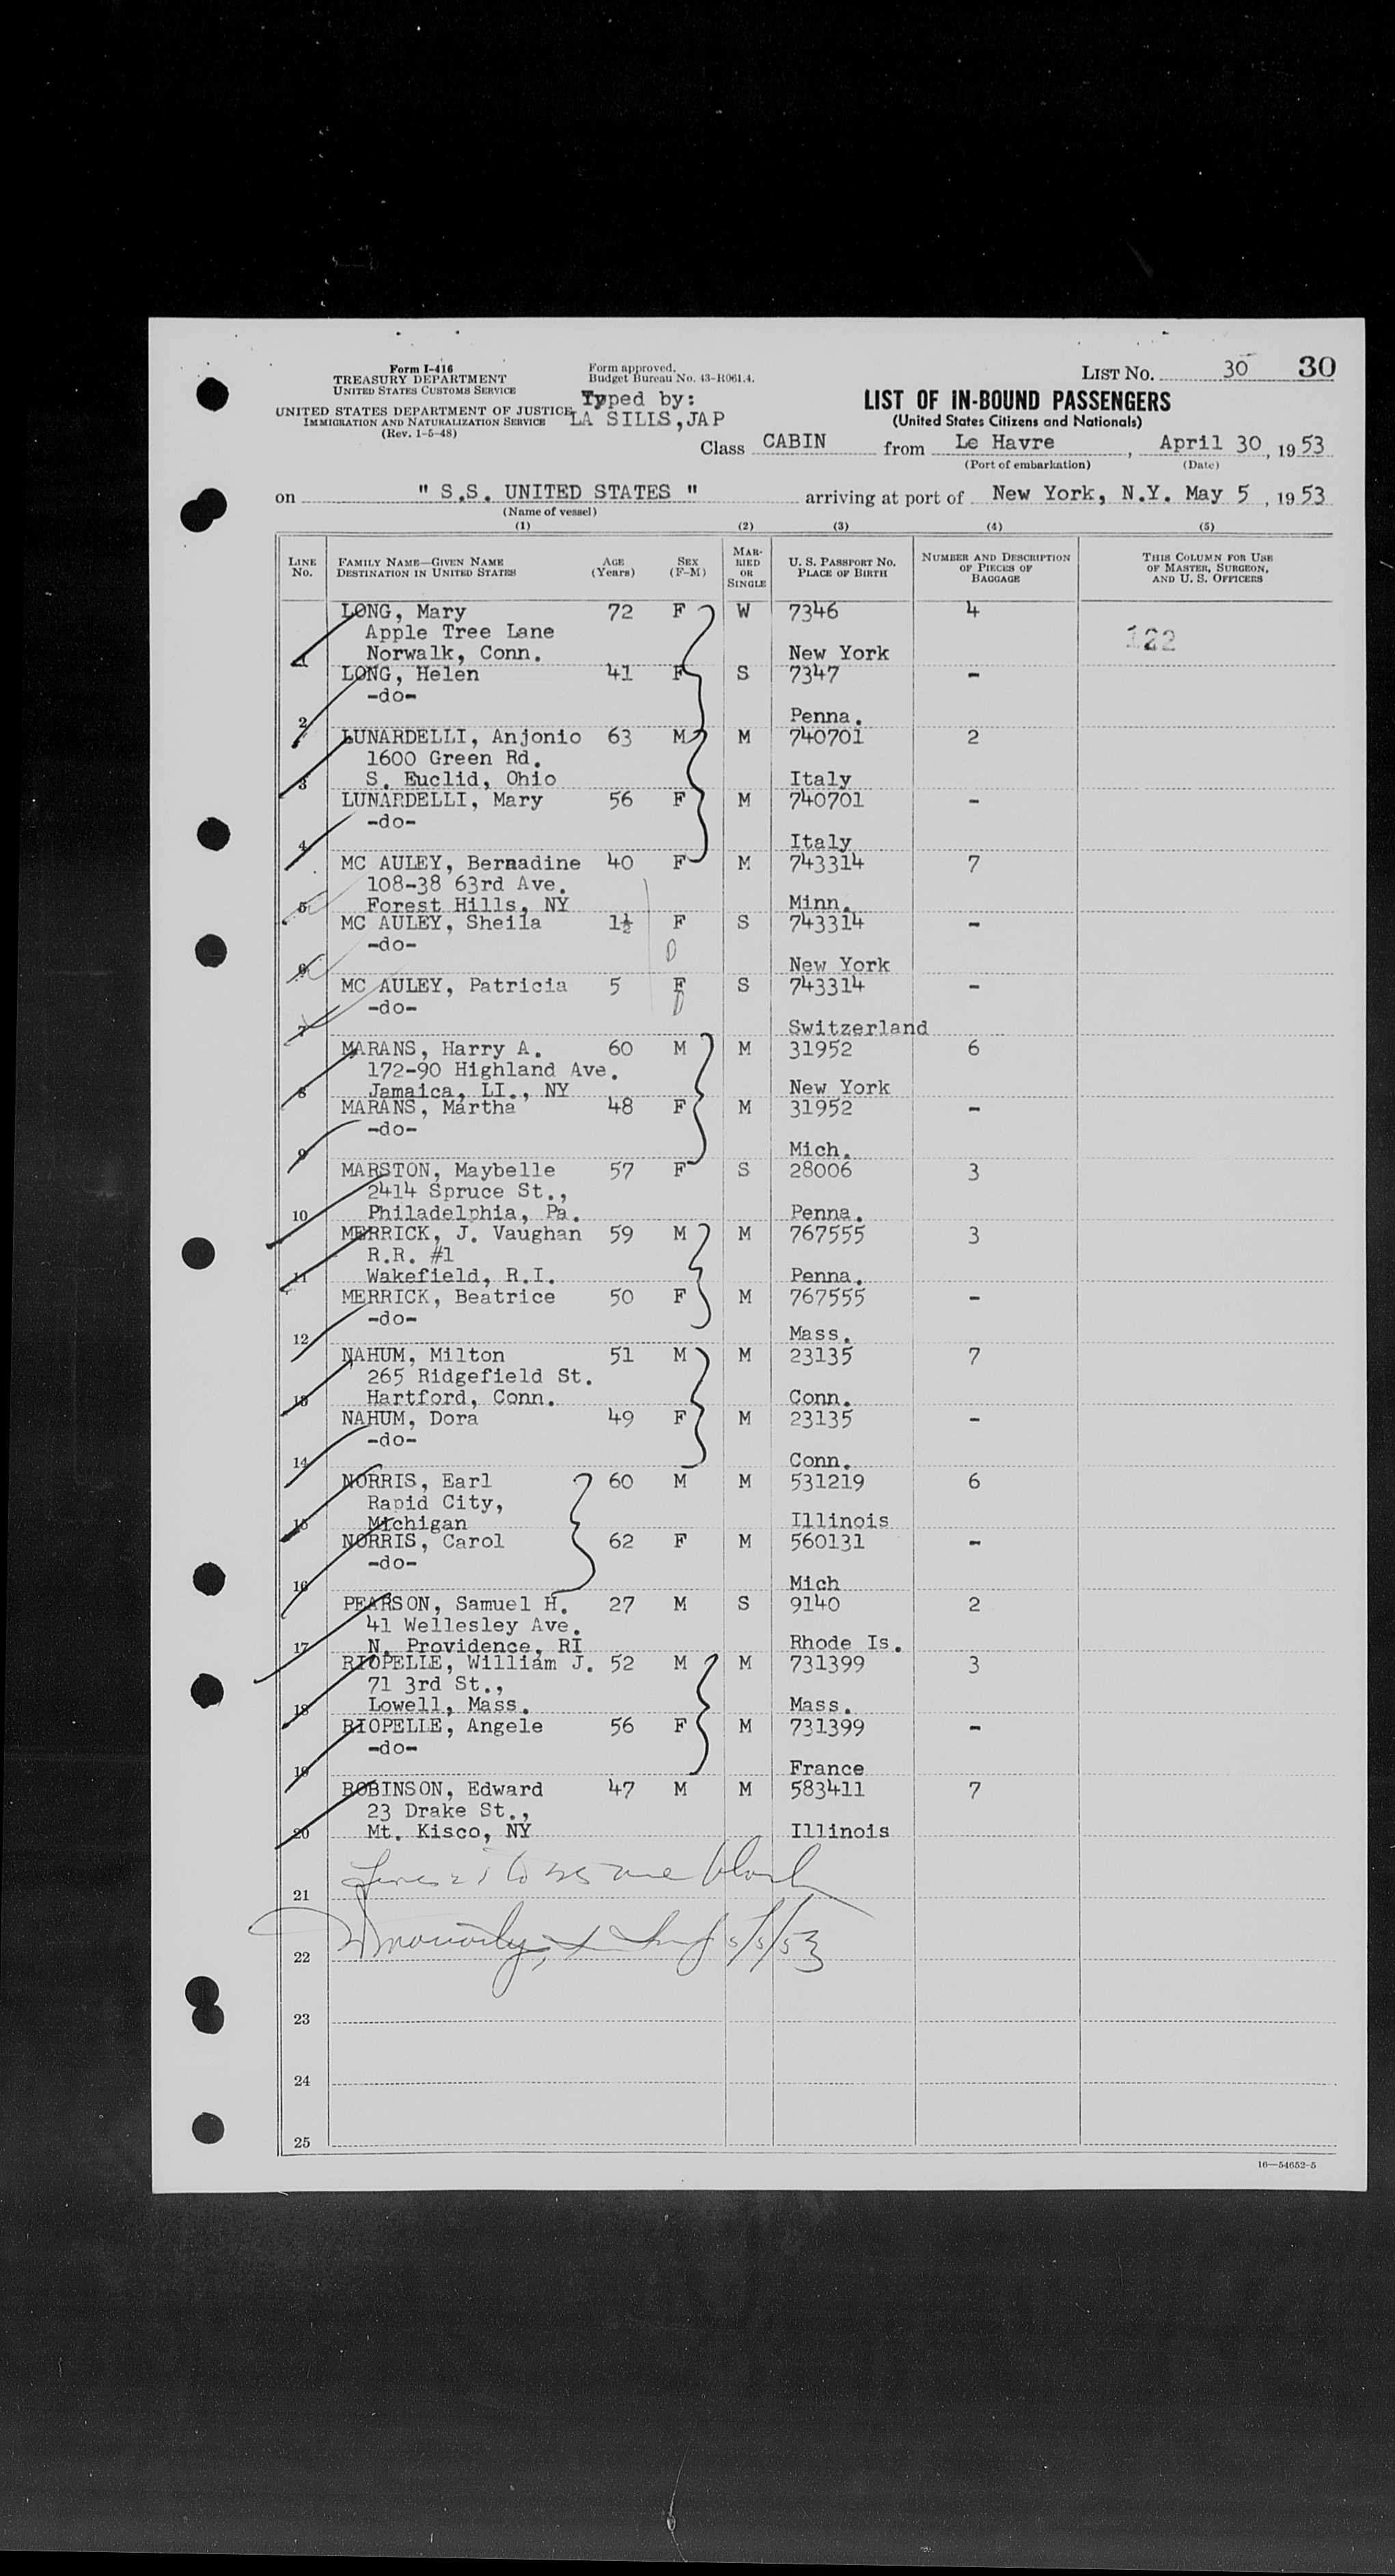 Form I-416
TREASURY DEPARTMENT
UNITED STATES CUSTOMS SERVICE
UNITED STATES DEPARTMENT OF JUSTICE
IMMIGRATION AND NATURALIZATION SERVICE
(Rev. 1-5-48)
Form approved.
Budget Bureau No. 43-R061.4.
Typed by:
LA SILLS, JAP
LIST NO. 30 30
LIST OF IN-BOUND PASSENGERS
(United States Citizens and Nationals)
Class CABIN from Le Havre, April 30, 1953
(Port of embarkation) (Date)
on " S.S. UNITED STATES " arriving at port of New York, N.Y. May 5, 1953
(Name of vessel)
(1) (2) (3) (4) (5)
LINE No. FAMILY NAME—GIVEN NAME DESTINATION IN UNITED STATES AGE (Years) SEX (F-M) MARRIED OR SINGLE U. S. PASSPORT NO. PLACE OF BIRTH NUMBER AND DESCRIPTION OF PIECES OF BAGGAGE THIS COLUMN FOR USE OF MASTER, SURGEON, AND U. S. OFFICERS
LONG, Mary 72 F W 7346 4
Apple Tree Lane 122
1 Norwalk, Conn. New York
LONG, Helen 41 F S 7347 -
-do-
2 Penna.
LUNARDELLI, Anjonio 63 M M 740701 2
1600 Green Rd.
3 S. Euclid, Ohio Italy
LUNARDELLI, Mary 56 F M 740701 -
-do-
4 Italy
MC AULEY, Bernadine 40 F M 743314 7
108-38 63rd Ave.
5 Forest Hills, NY Minn.
MC AULEY, Sheila 1½ F S 743314 -
-do-
6 New York
MC AULEY, Patricia 5 F S 743314 -
-do-
7 Switzerland
MARANS, Harry A. 60 M M 31952 6
172-90 Highland Ave.
8 Jamaica, LI., NY New York
MARANS, Martha 48 F M 31952 -
-do-
9 Mich.
MARSTON, Maybelle 57 F S 28006 3
2414 Spruce St.,
10 Philadelphia, Pa. Penna.
MERRICK, J. Vaughan 59 M M 767555 3
R.R. #1
11 Wakefield, R.I. Penna.
MERRICK, Beatrice 50 F M 767555 -
-do-
12 Mass.
NAHUM, Milton 51 M M 23135 7
265 Ridgefield St.
13 Hartford, Conn. Conn.
NAHUM, Dora 49 F M 23135 -
-do-
14 Conn.
NORRIS, Earl 60 M M 531219 6
Rapid City,
15 Michigan Illinois
NORRIS, Carol 62 F M 560131 -
-do-
16 Mich
PEARSON, Samuel H. 27 M S 9140 2
41 Wellesley Ave.
17 N. Providence, RI Rhode Is.
RIOPELLE, William J. 52 M M 731399 3
71 3rd St.,
18 Lowell, Mass. Mass.
RIOPELLE, Angele 56 F M 731399 -
-do-
19 France
ROBINSON, Edward 47 M M 583411 7
23 Drake St.,
20 Mt. Kisco, NY Illinois
Lines 21 to 25 are blank
21
22 5/5/53
23
24
25
16—54652-5